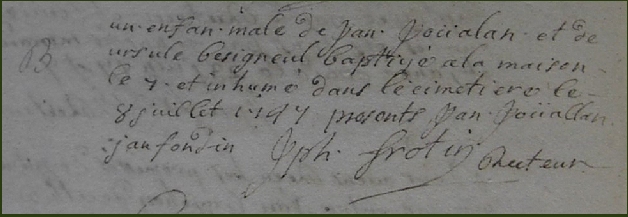 un enfan male de yan poüalan et de
B ursule besigneul baptisé a la maison
le 7 et inhumé dans le cimetiere le
8 juillet 1747 presents yan poüallan
jan fondin Jph. Grotin Recteur